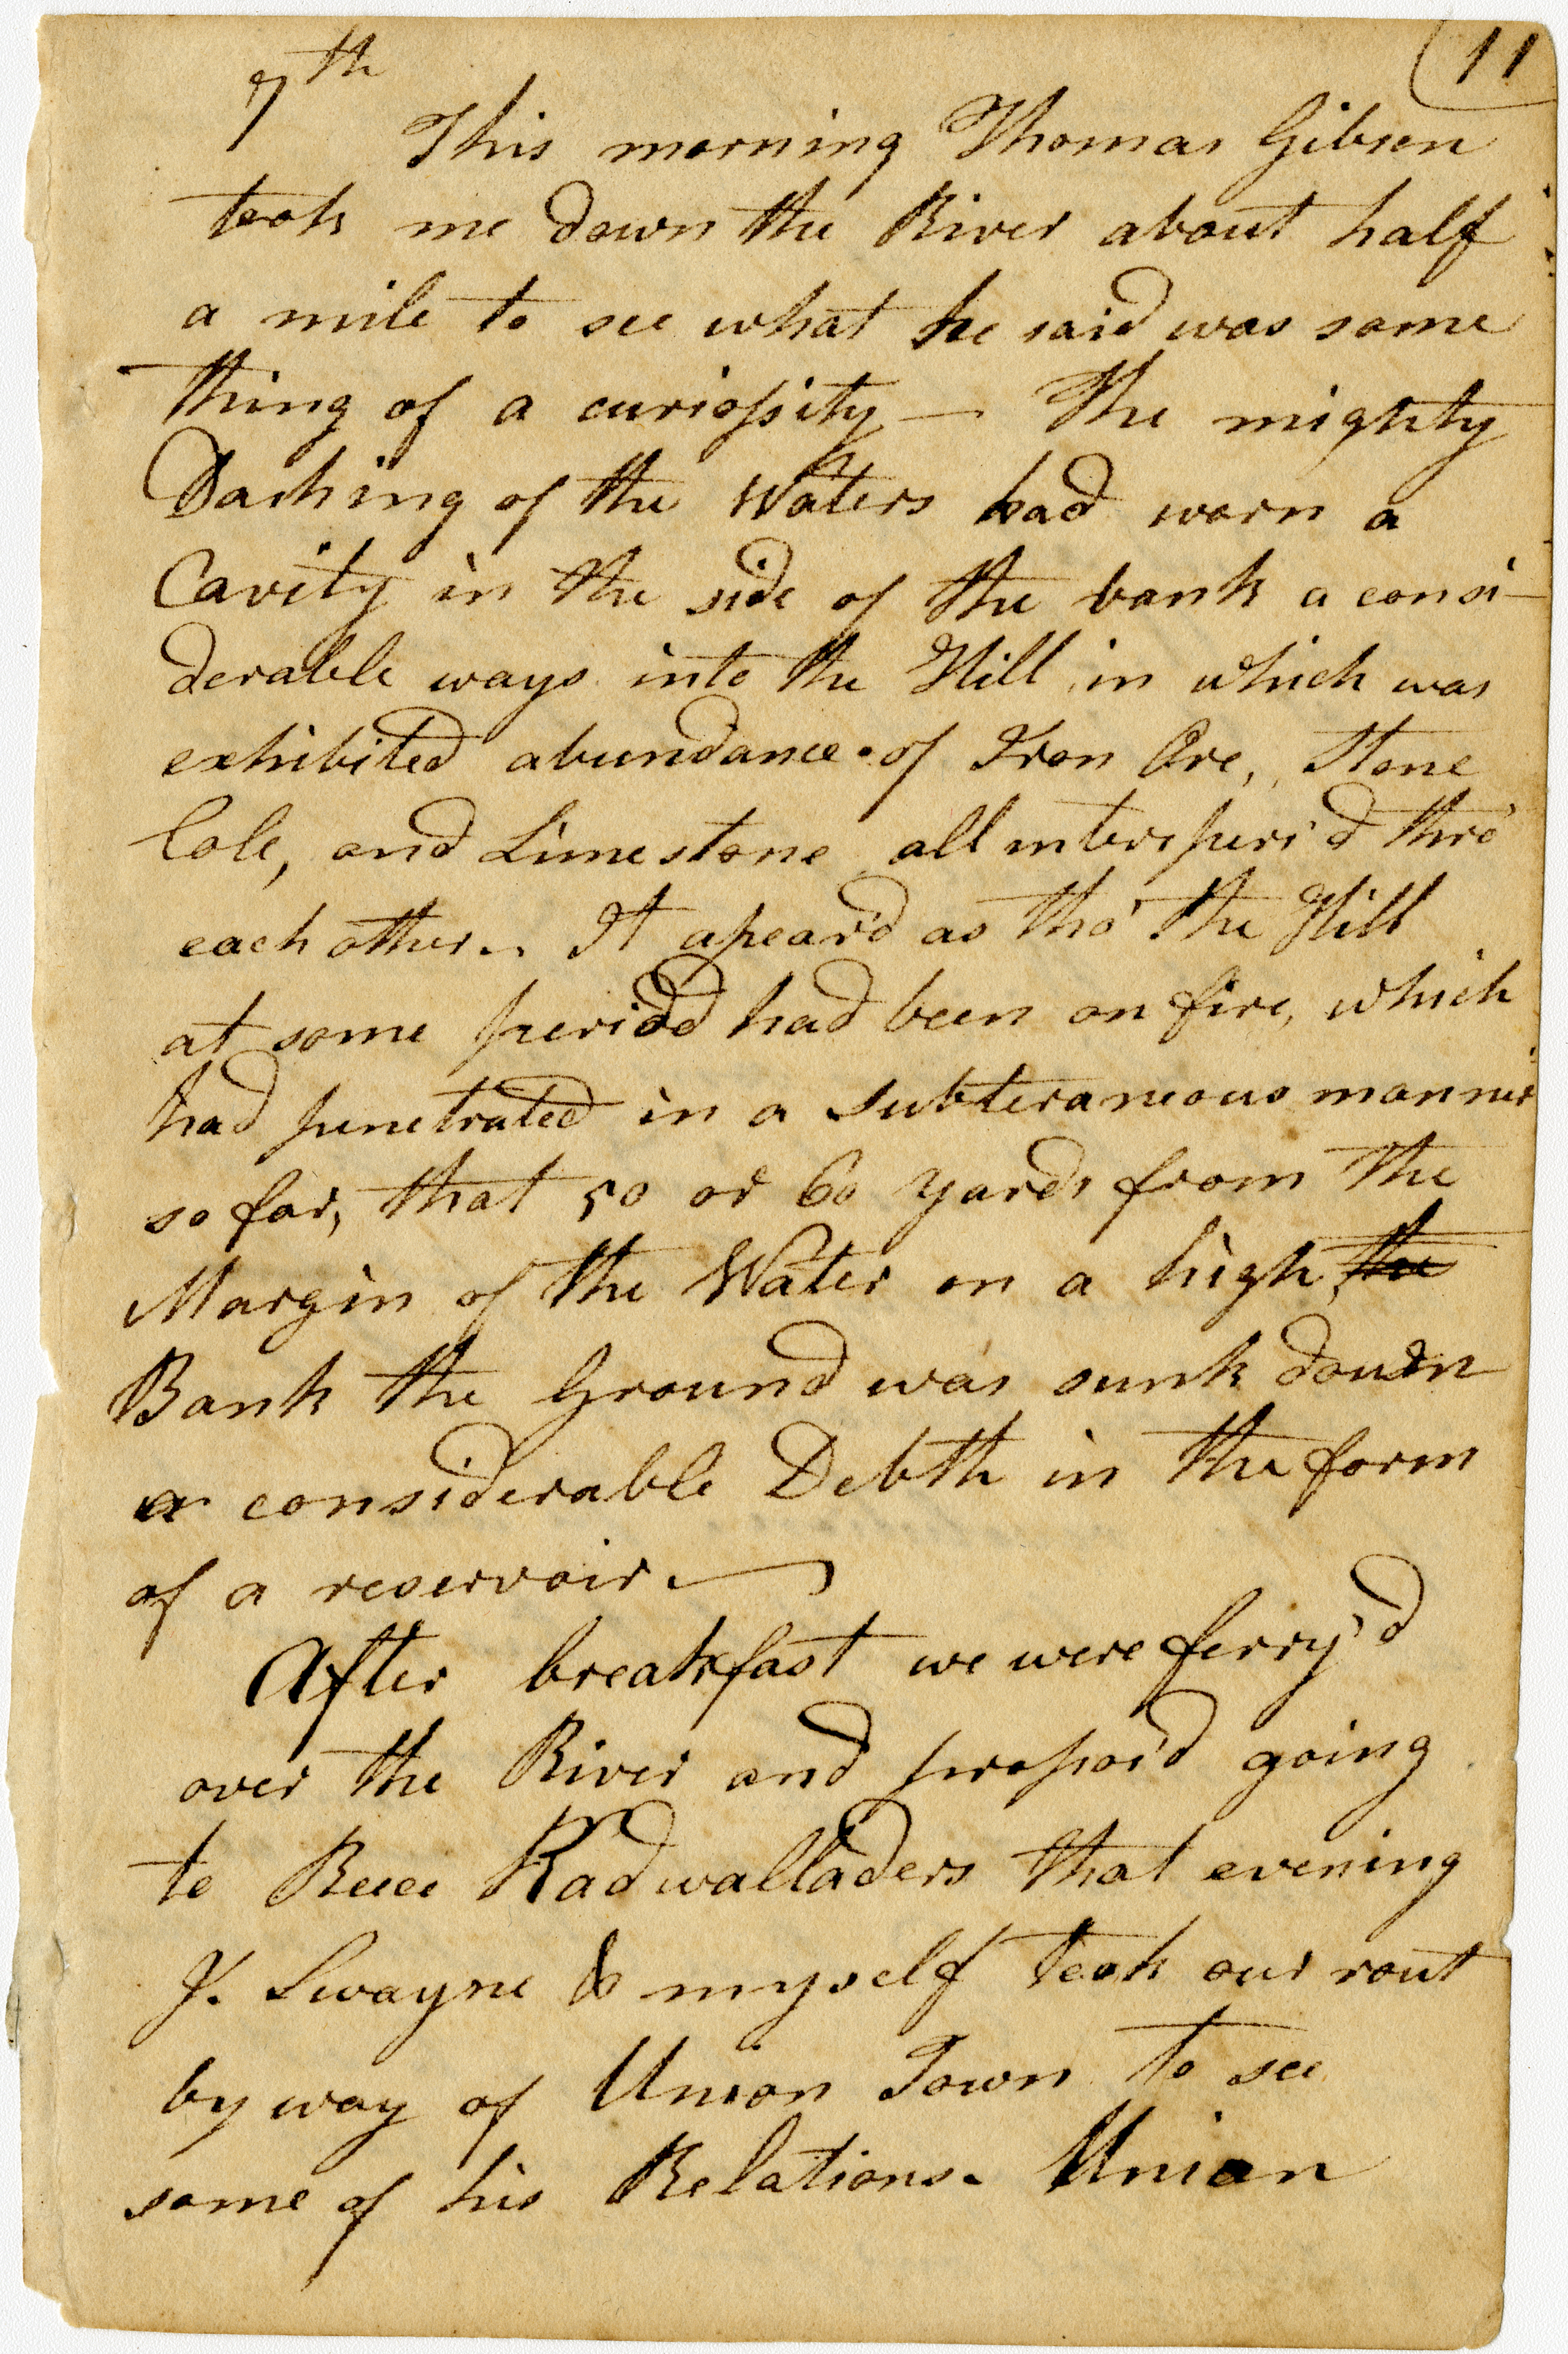 11
7th
This morning Thomas Gibson
took me down the River about half
a mile to see what he said was some
thing of a curiossity — The mighty
Dashing of the Waters had worn a
Cavity in the side of the bank a consi-
derable ways into the Hill in which was
exhibited abundance of Iron Ore, Stone
Cole, and Limestone all interspers'd thro'
each other. It apear'd as tho' the Hill
at some period had been on fire, which
had penetrated in a subteraneous manner
so far, that 50 or 60 yards from the
Margin of the Water on a high, the
Bank the Ground was sunk down
a considerable Debth in the form
of a reservoir. —
After breakfast we were ferry'd
over the River and propos'd going
to Rees Kadwalladers that evening
J. Swayne & myself took our rout
by way of Union Town to see
some of his Relations. Union